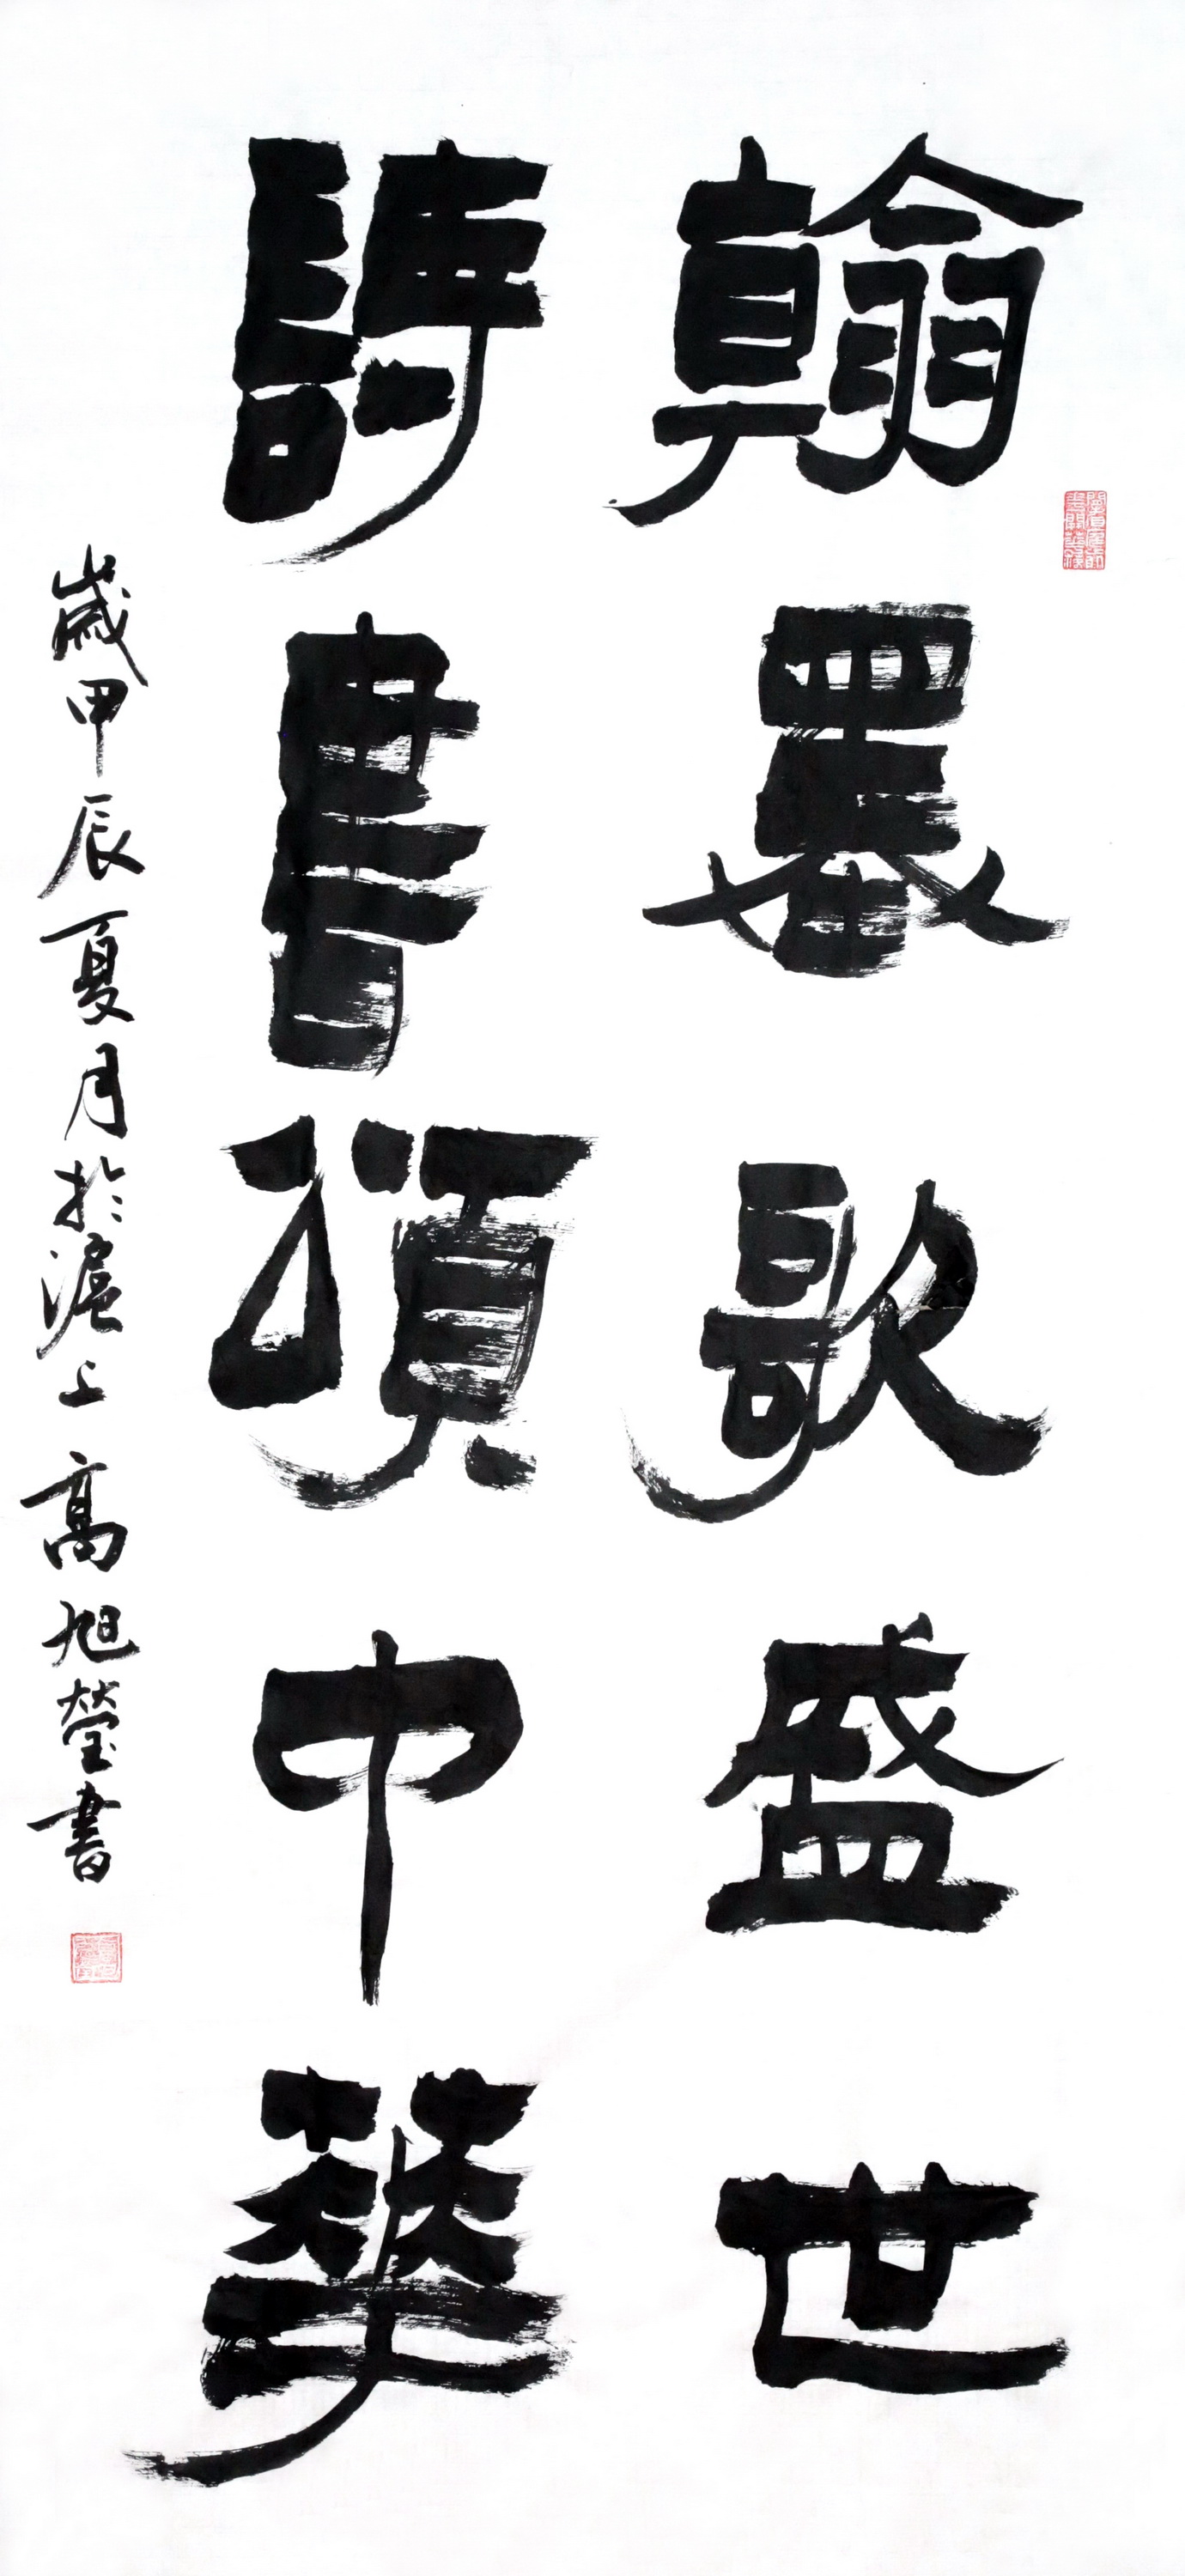 翰墨歌盛世
詩書頌中華
歲甲辰夏月於滬上高旭瑩書